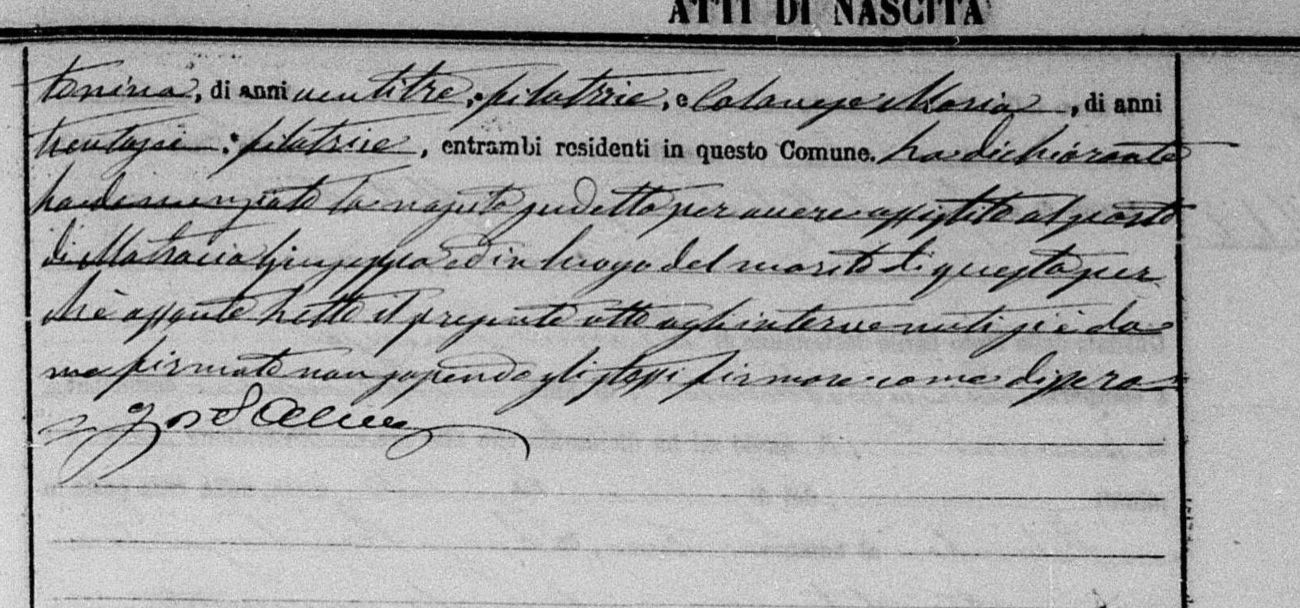 ATTI DI NASCITA
tonina, di anni ventitre, filatrice, e Calanese Maria, di anni
trentasei, filatrice, entrambi residenti in questo Comune. La dichiarante
ha denunziato la nascita sudetta per avere assistito al parto
di Matracia Giuseppa ed in luogo del marito di questa per
chè assente Letto il presente atto agli intervenuti si è da
me firmato non sapendo gli stessi firmare come dissero